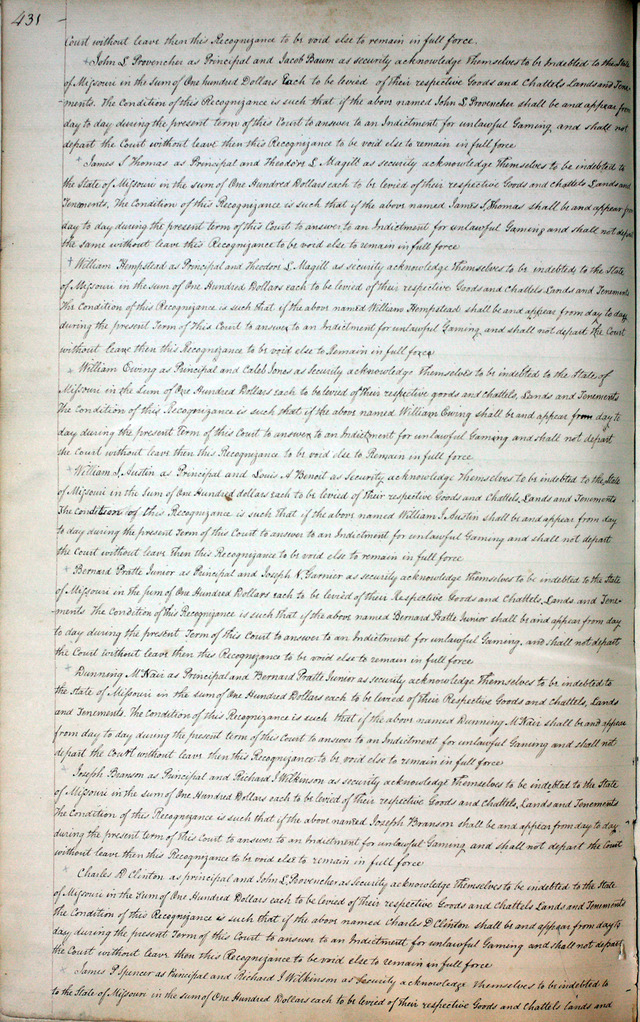 431
Court without leave then this Recognizance to be void else to remain in full force.
+ John L Provencher as Principal and Jacob Baum as security acknowledge themselves to be Indebted to the State
of Missouri in the sum of One hundred Dollars Each to be levied of their respective Goods and Chattels Lands and Tene-
ments. The Condition of this Recognizance is such that if the above named John L Provencher shall be and appear from
day to day during the present term of this Court to answer to an Indictment for unlawful Gaming, and shall not
depart the Court without leave then this Recognizance to be void else to remain in full force
+ James S Thomas as Principal and Theodore L Magill as security acknowledge themselves to be indebted to
the State of Missouri in the sum of One Hundred Dollars each to be levied of their respective Goods and chattels Lands and
Tenements. The Condition of this Recognizance is such that if the above named James S, Thomas shall be and appear from
day to day during the present term of this Court to answer to an Indictment for unlawful Gaming and shall not depart
the same without leave this Recognizance to be void else to remain in full force
+ William Hempstead as Principal and Theodore L. Magill as security acknowledge themselves to be indebted to the State
of Missouri in the sum of One Hundred Dollars each to be levied of their respective Goods and Chattels Lands and Tenements
The Condition of this Recognizance is such that if the above named William Hempstead shall be and appear from day to day
during the present Term of this Court to answer to an Indictment for unlawful Gaming, and shall not depart the Court
without leave then this Recognizance to be void else to Remain in full force
+ William Ewing as Principal and Caleb Jones as Security acknowledge themselves to be indebted to the State of
Missouri in the Sum of One Hundred Dollars each to be levied of their respective goods and chattels, Lands and Tenements
The Condition of this Recognizance is such that if the above named William Ewing shall be and appear from day to
day during the present Term of this Court to answer to an Indictment for unlawful Gaming and shall not depart
the Court without leave then this Recognizance to be void else to Remain in full force
+ William J. Austin as Principal and Louis A Benoit as Security acknowledge themselves to be indebted to the State
of Missouri in the Sum of One Hundred dollars each to be levied of their respective Goods and Chattels, Lands and Tenements
The Condition of this Recognizance is such that if the above named William J. Austin shall be and appear from day
to day during the present Term of this Court to answer to an Indictment for unlawful Gaming and shall not depart
the Court without leave then this Recognizance to be void else to remain in full force
+ Bernard Pratte Junior as Principal and Joseph N. Garnier as security acknowledge themselves to be indebted to the State
of Missouri in the sum of One Hundred Dollars each to be levied of their Respective Goods and Chattels, Lands and Tene-
ments. The Condition of this Recognizance is such that if the above named Bernard Pratte Junior shall be and appear from day
to day during the present Term of this Court to answer to an Indictment for unlawful Gaming, and shall not depart
the Court without leave then this Recognizance to be void else to remain in full force
+ Dunning McNair as Principal and Bernard Pratte Junior as security acknowledge themselves to be indebted to
the State of Missouri in the sum of One Hundred Dollars each to be levied of their Respective Goods and Chattels, Lands
and Tenements. The Condition of this Recognizance is such that if the above named Dunning McNair shall be and appear
from day to day during the present term of this Court to answer to an Indictment for unlawful Gaming and shall not
depart the Court without leave then this Recognizance to be void else to remain in full force
+ Joseph Branson as Principal and Richard J Wilkinson as security acknowledge themselves to be indebted to the State
of Missouri in the sum of One Hundred Dollars each to be levied of their respective Goods and Chattels, Lands and Tenements
The Condition of this Recognizance is such that if the above named Joseph Branson shall be and appear from day to day
during the present term of this Court to answer to an Indictment for unlawful Gaming and shall not depart the Court
without leave then this Recognizance to be void else to remain in full force
+ Charles D Clinton as principal and John L. Provencher as Security acknowledge themselves to be indebted to the State
of Missouri in the Sum of One Hundred Dollars each to be levied of their respective Goods and Chattels Lands and Tenements
the Condition of this Recognizance is such that if the above named Charles D Clinton shall be and appear from day to
day during the present Term of this Court to answer to an Indictment for unlawful Gaming and shall not depart
the Court without leave then this Recognizance to be void else to remain in full force
+ James P Spencer as Principal and Richard J Wilkinson as Security acknowledge themselves to be indebted to
to the State of Missouri in the sum of One Hundred Dollars each to be levied of their respective Goods and Chattels Lands and